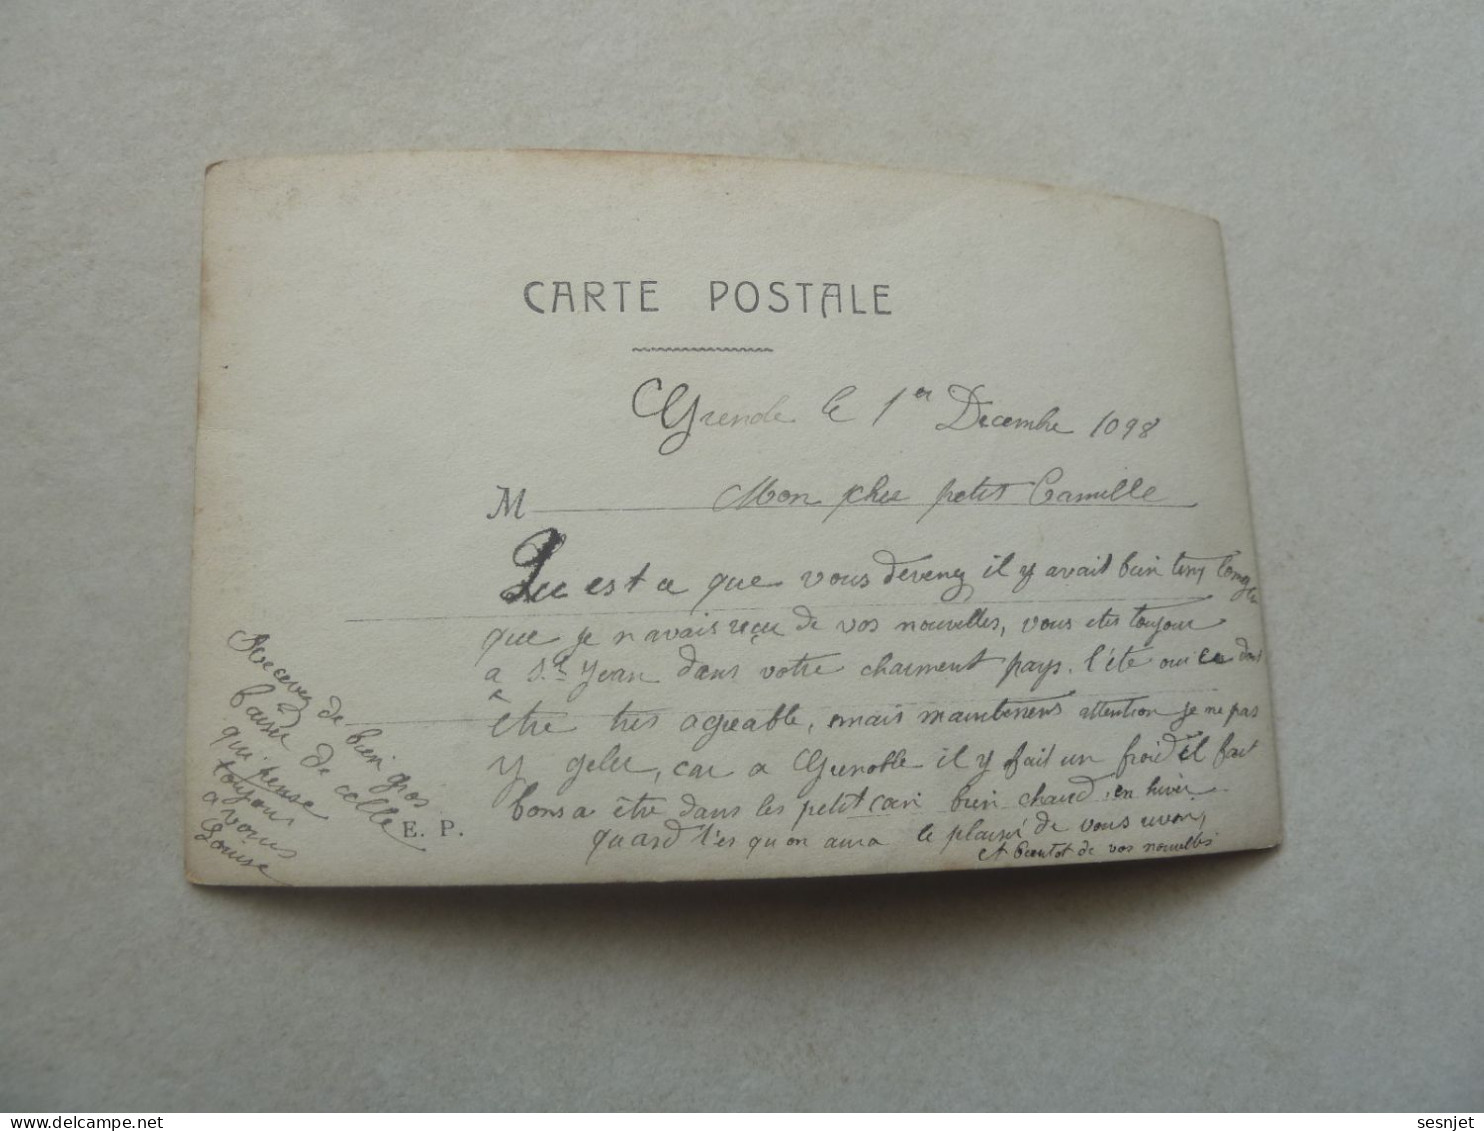 CARTE POSTALE
Grenoble le 1er Decembre 1098
M Mon cher petit Camille
Qu est a que vous devenez il y avait bien temp longs
que je n avais reçu de vos nouvelles, vous etes toujour
a St Jean dans votre charment pays. l'été oui ca dois
être tres agreable, mais maintenens attention je ne pas
y geler, car a Grenoble il y fait un froid il fait
bons a être dans les petit coin bien chaud en hiver
quand t'es qu on aura le plaisir de vous uvoir,
et bientot de vos nouvelles
Recevez de bien gros
baiser de celle
qui pense
toujours
a vous
Louise
E. P.
sesnjet